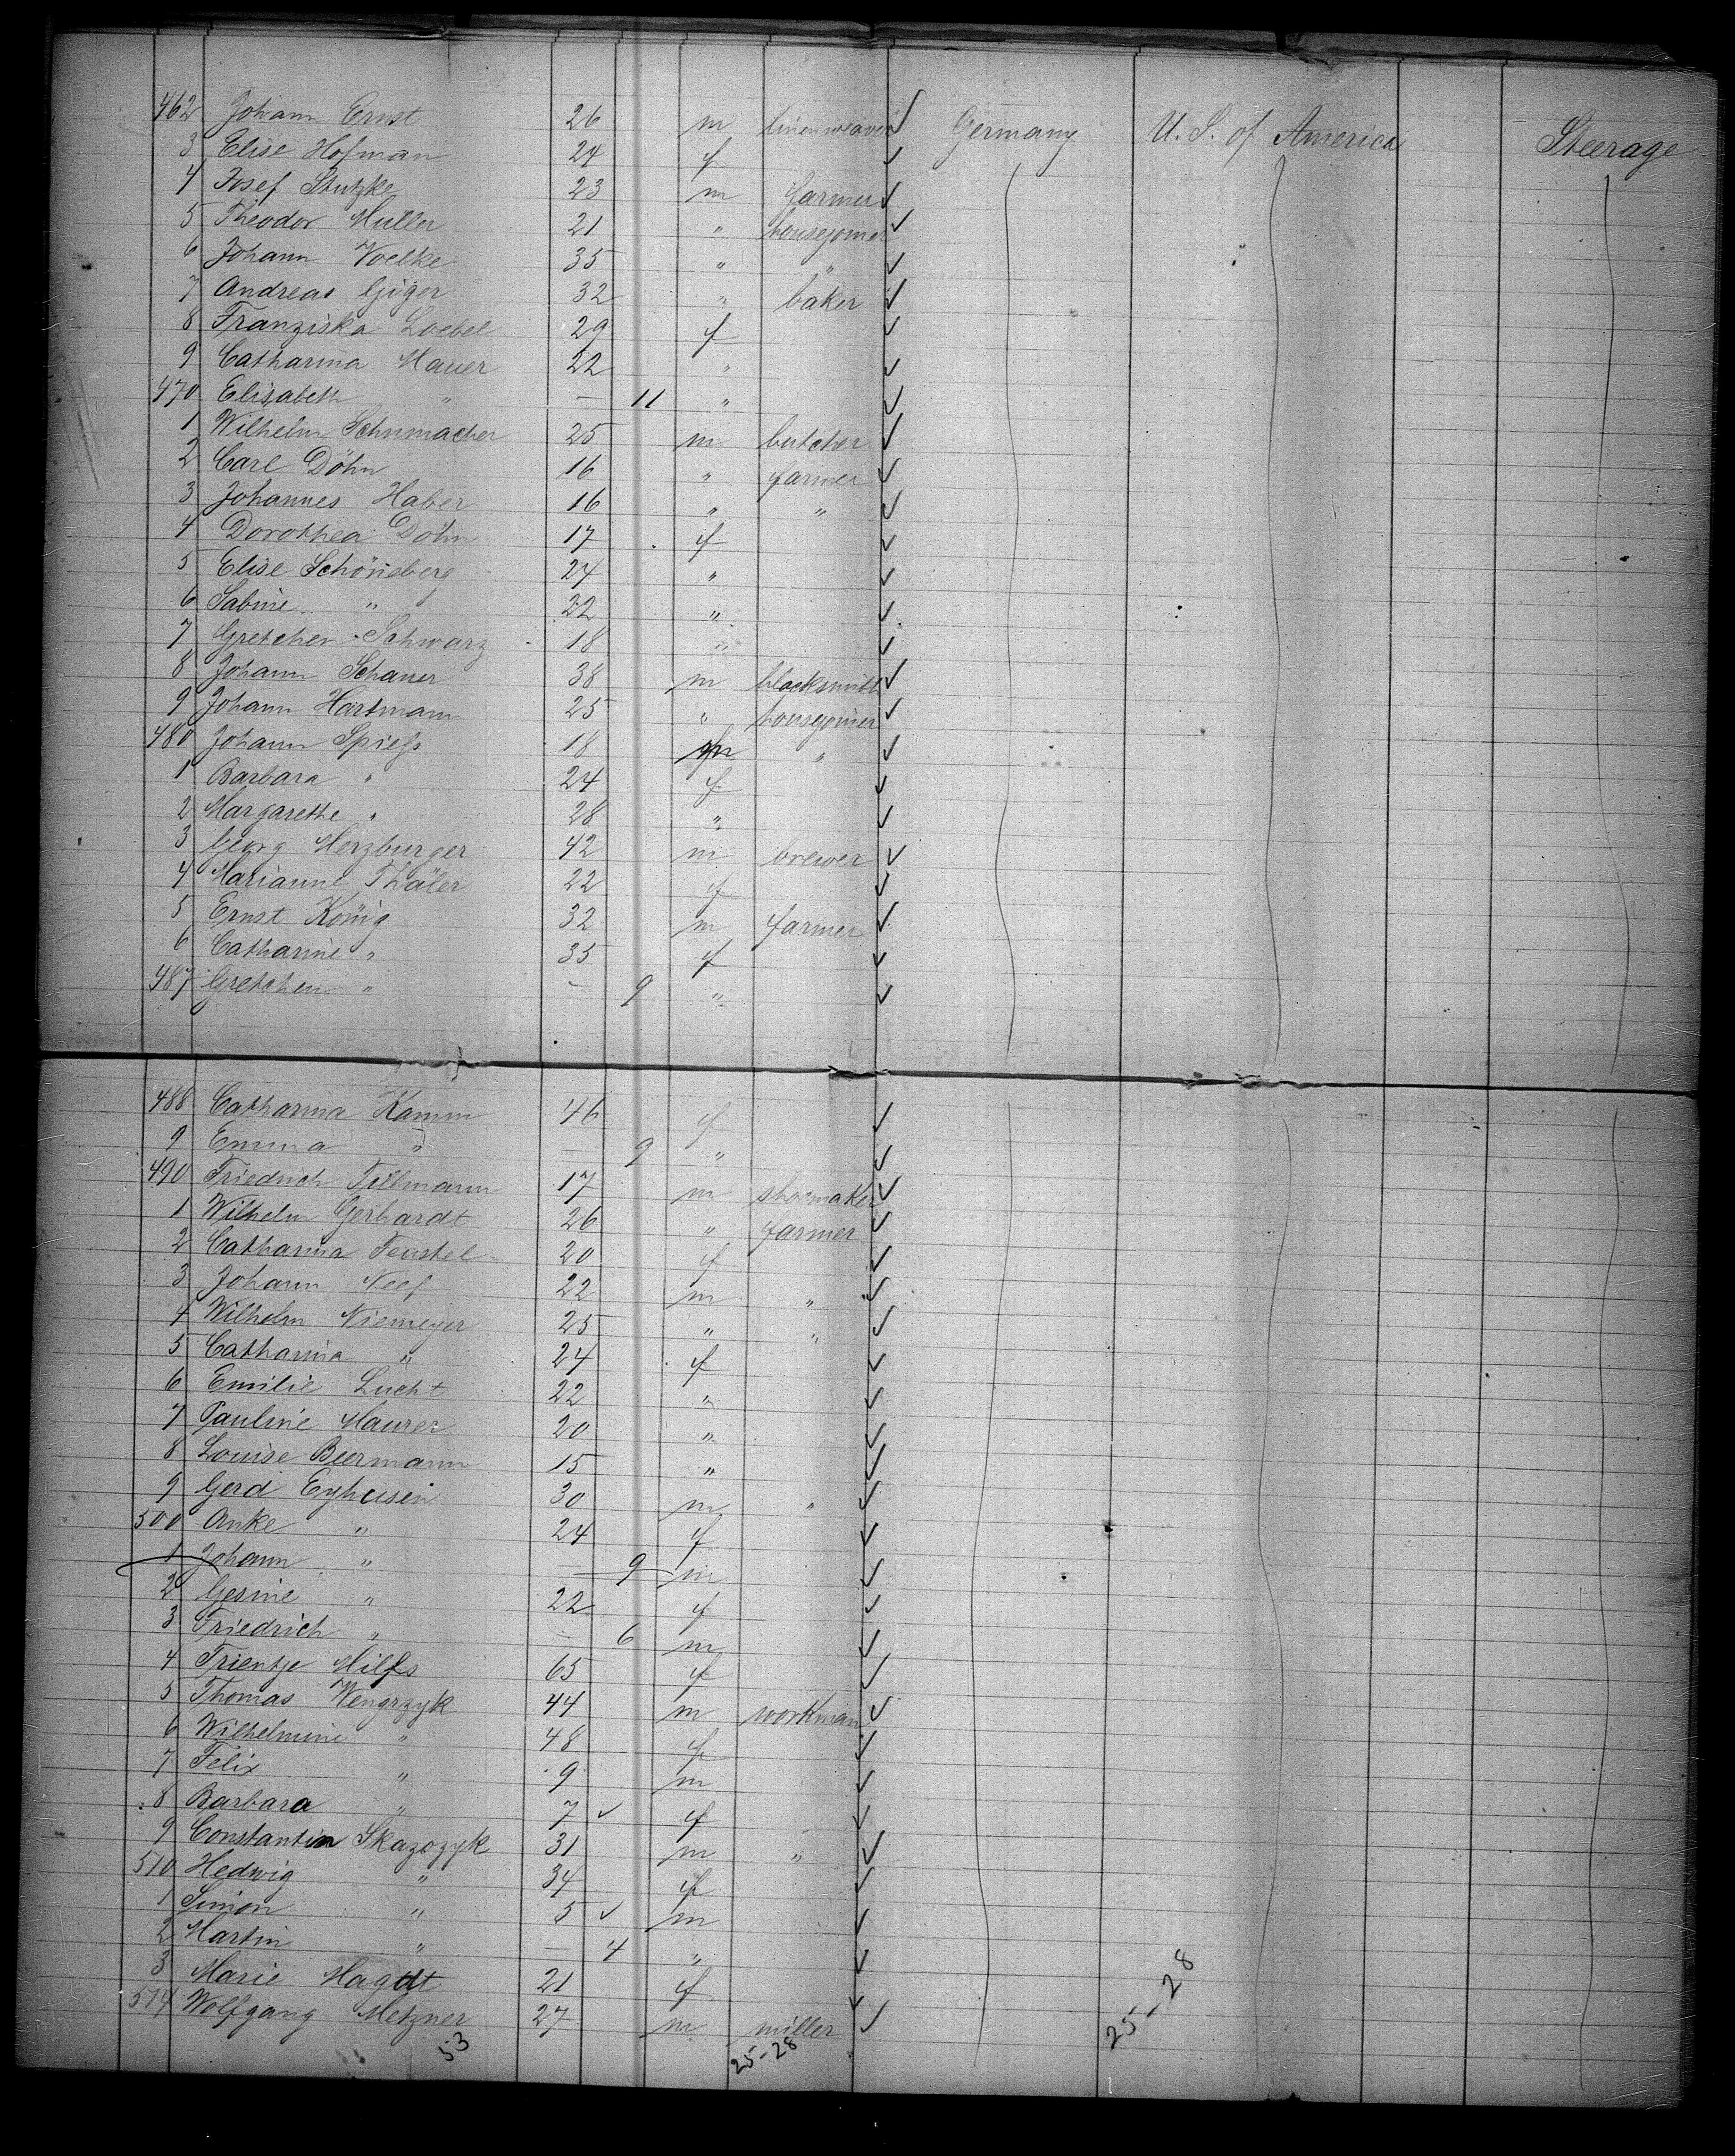 462 Johann Ernst 26 m linenweaver ✓ Germany U. S. of America Steerage
3 Elise Hofman 24 f ✓
4 Josef Stutzke 23 m farmer ✓
5 Theodor Müller 21 " housejoiner ✓
6 Johann Voelke 35 " " ✓
7 Andreas Giger 32 " baker ✓
8 Franziska Loebel 29 f ✓
9 Catharina Mauer 22 " ✓
470 Elisabeth " — 11 " ✓
1 Wilhelm Schumacher 25 m butcher ✓
2 Carl Döhn 16 " farmer ✓
3 Johannes Haber 16 " " ✓
4 Dorothea Döhn 17 f ✓
5 Elise Schöneberg 24 " ✓
6 Sabine " 22 " ✓
7 Gretchen Schwarz 18 " ✓
8 Johann Schauer 38 m blacksmith ✓
9 Johann Hartmann 25 " housejoiner ✓
480 Johann Spiess 18 m " ✓
1 Barbara " 24 f ✓
2 Margarethe " 28 " ✓
3 Georg Herzburger 42 m brewer ✓
4 Marianne Thäler 22 f ✓
5 Ernst König 32 m farmer ✓
6 Catharine " 35 f ✓
487 Gretchen " — 9 " ✓
488 Catharina Kamm 46 f ✓
9 Emma " — 9 " ✓
490 Friedrich Tillmann 17 m shoemaker ✓
1 Wilhelm Gerhardt 26 " farmer ✓
2 Catharina Feustel 20 f ✓
3 Johann Neef 22 m " ✓
4 Wilhelm Niemeyer 25 " " ✓
5 Catharina " 24 f ✓
6 Emilie Lucht 22 " ✓
7 Pauline Maurer 20 " ✓
8 Louise Beermann 15 " ✓
9 Gerd Eyhusen 30 m " ✓
500 Anke " 24 f ✓
1 Johann " — 9 m ✓
2 Gesine " 22 f ✓
3 Friedrich " — 6 m ✓
4 Trientje Hilfs 65 f ✓
5 Thomas Wengrzyk 44 m workman ✓
6 Wilhelmine " 48 f ✓
7 Felix " 9 m ✓
8 Barbara " 7 ✓ f ✓
9 Constantin Skazozyk 31 m " ✓
510 Hedwig " 34 f ✓
1 Simon " 5 ✓ m ✓
2 Martin " — 4 " ✓
3 Marie Magdt 21 f ✓
514 Wolfgang Metzner 27 m miller ✓
53 25-28 25-28